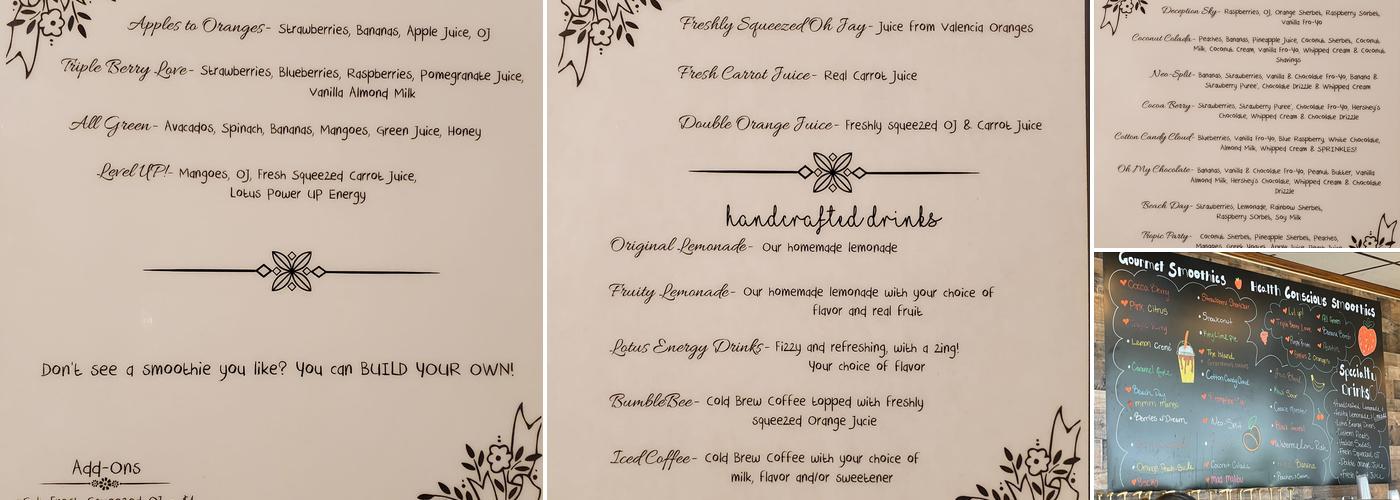 Apples to Oranges- Strawberries, Bananas, Apple Juice, OJ
Triple Berry Love- Strawberries, Blueberries, Raspberries, Pomegranate Juice,
Vanilla Almond Milk
All Green- Avacados, Spinach, Bananas, Mangoes, Green Juice, Honey
Level UP!- Mangoes, OJ, Fresh Squeezed Carrot Juice,
Lotus Power UP Energy
Don't see a smoothie you like? You can BUILD YOUR OWN!
Add-Ons
Freshly Squeezed Oh Jay- Juice from Valencia Oranges
Fresh Carrot Juice- Real Carrot Juice
Double Orange Juice- Freshly squeezed OJ & Carrot Juice
handcrafted drinks
Original Lemonade- Our homemade lemonade
Fruity Lemonade- Our homemade lemonade with your choice of
flavor and real fruit
Lotus Energy Drinks- Fizzy and refreshing, with a zing!
Your choice of flavor
BumbleBee- Cold Brew Coffee topped with freshly
squeezed Orange Jucie
Iced Coffee- Cold Brew Coffee with your choice of
milk, flavor and/or sweetener
Deception Sky- Raspberries, OJ, Orange Sherbet, Raspberry Sorbet,
Vanilla Fro-Yo
Coconut Colada- Peaches, Bananas, Pineapple Juice, Coconut Sherbet, Coconut
Milk, Coconut Cream, Vanilla Fro-Yo, Whipped Cream & Coconut
Shavings
Neo-Split- Bananas, Strawberries, Vanilla & Chocolate Fro-Yo, Banana &
Strawberry Puree', Chocolate Drizzle & Whipped Cream
Cocoa Berry- Strawberries, Strawberry Puree', Chocolate Fro-Yo, Hershey's
Chocolate, Whipped Cream & Chocolate Drizzle
Cotton Candy Cloud- Blueberries, Vanilla Fro-Yo, Blue Raspberry, White Chocolate,
Almond Milk, Whipped Cream & SPRINKLES!
Oh My Chocolate- Bananas, Vanilla & Chocolate Fro-Yo, Peanut Butter, Vanilla
Almond Milk, Hershey's Chocolate, Whipped Cream & Chocolate
Drizzle
Beach Day- Strawberries, Lemonade, Rainbow Sherbet,
Raspberry SOrbet, Soy Milk
Tropic Party- Coconut Sherbet, Pineapple Sherbet, Peaches,
Gourmet Smoothies
Health Conscious Smoothies
Cocoa Berry
Pink Citrus
Lemon Creme
Caramel Apple
Beach Day
Berries n' Dream
Snowconut
Key Lime Pie
The Island
Cotton Candy Cloud
Neo-Split
Coconut Colada
Mad Malibu
Lvl up!
All Green
Triple Berry Love
Banana Bomb
Apples 2 Oranges
Watermelon Rush
Specialty
Drinks